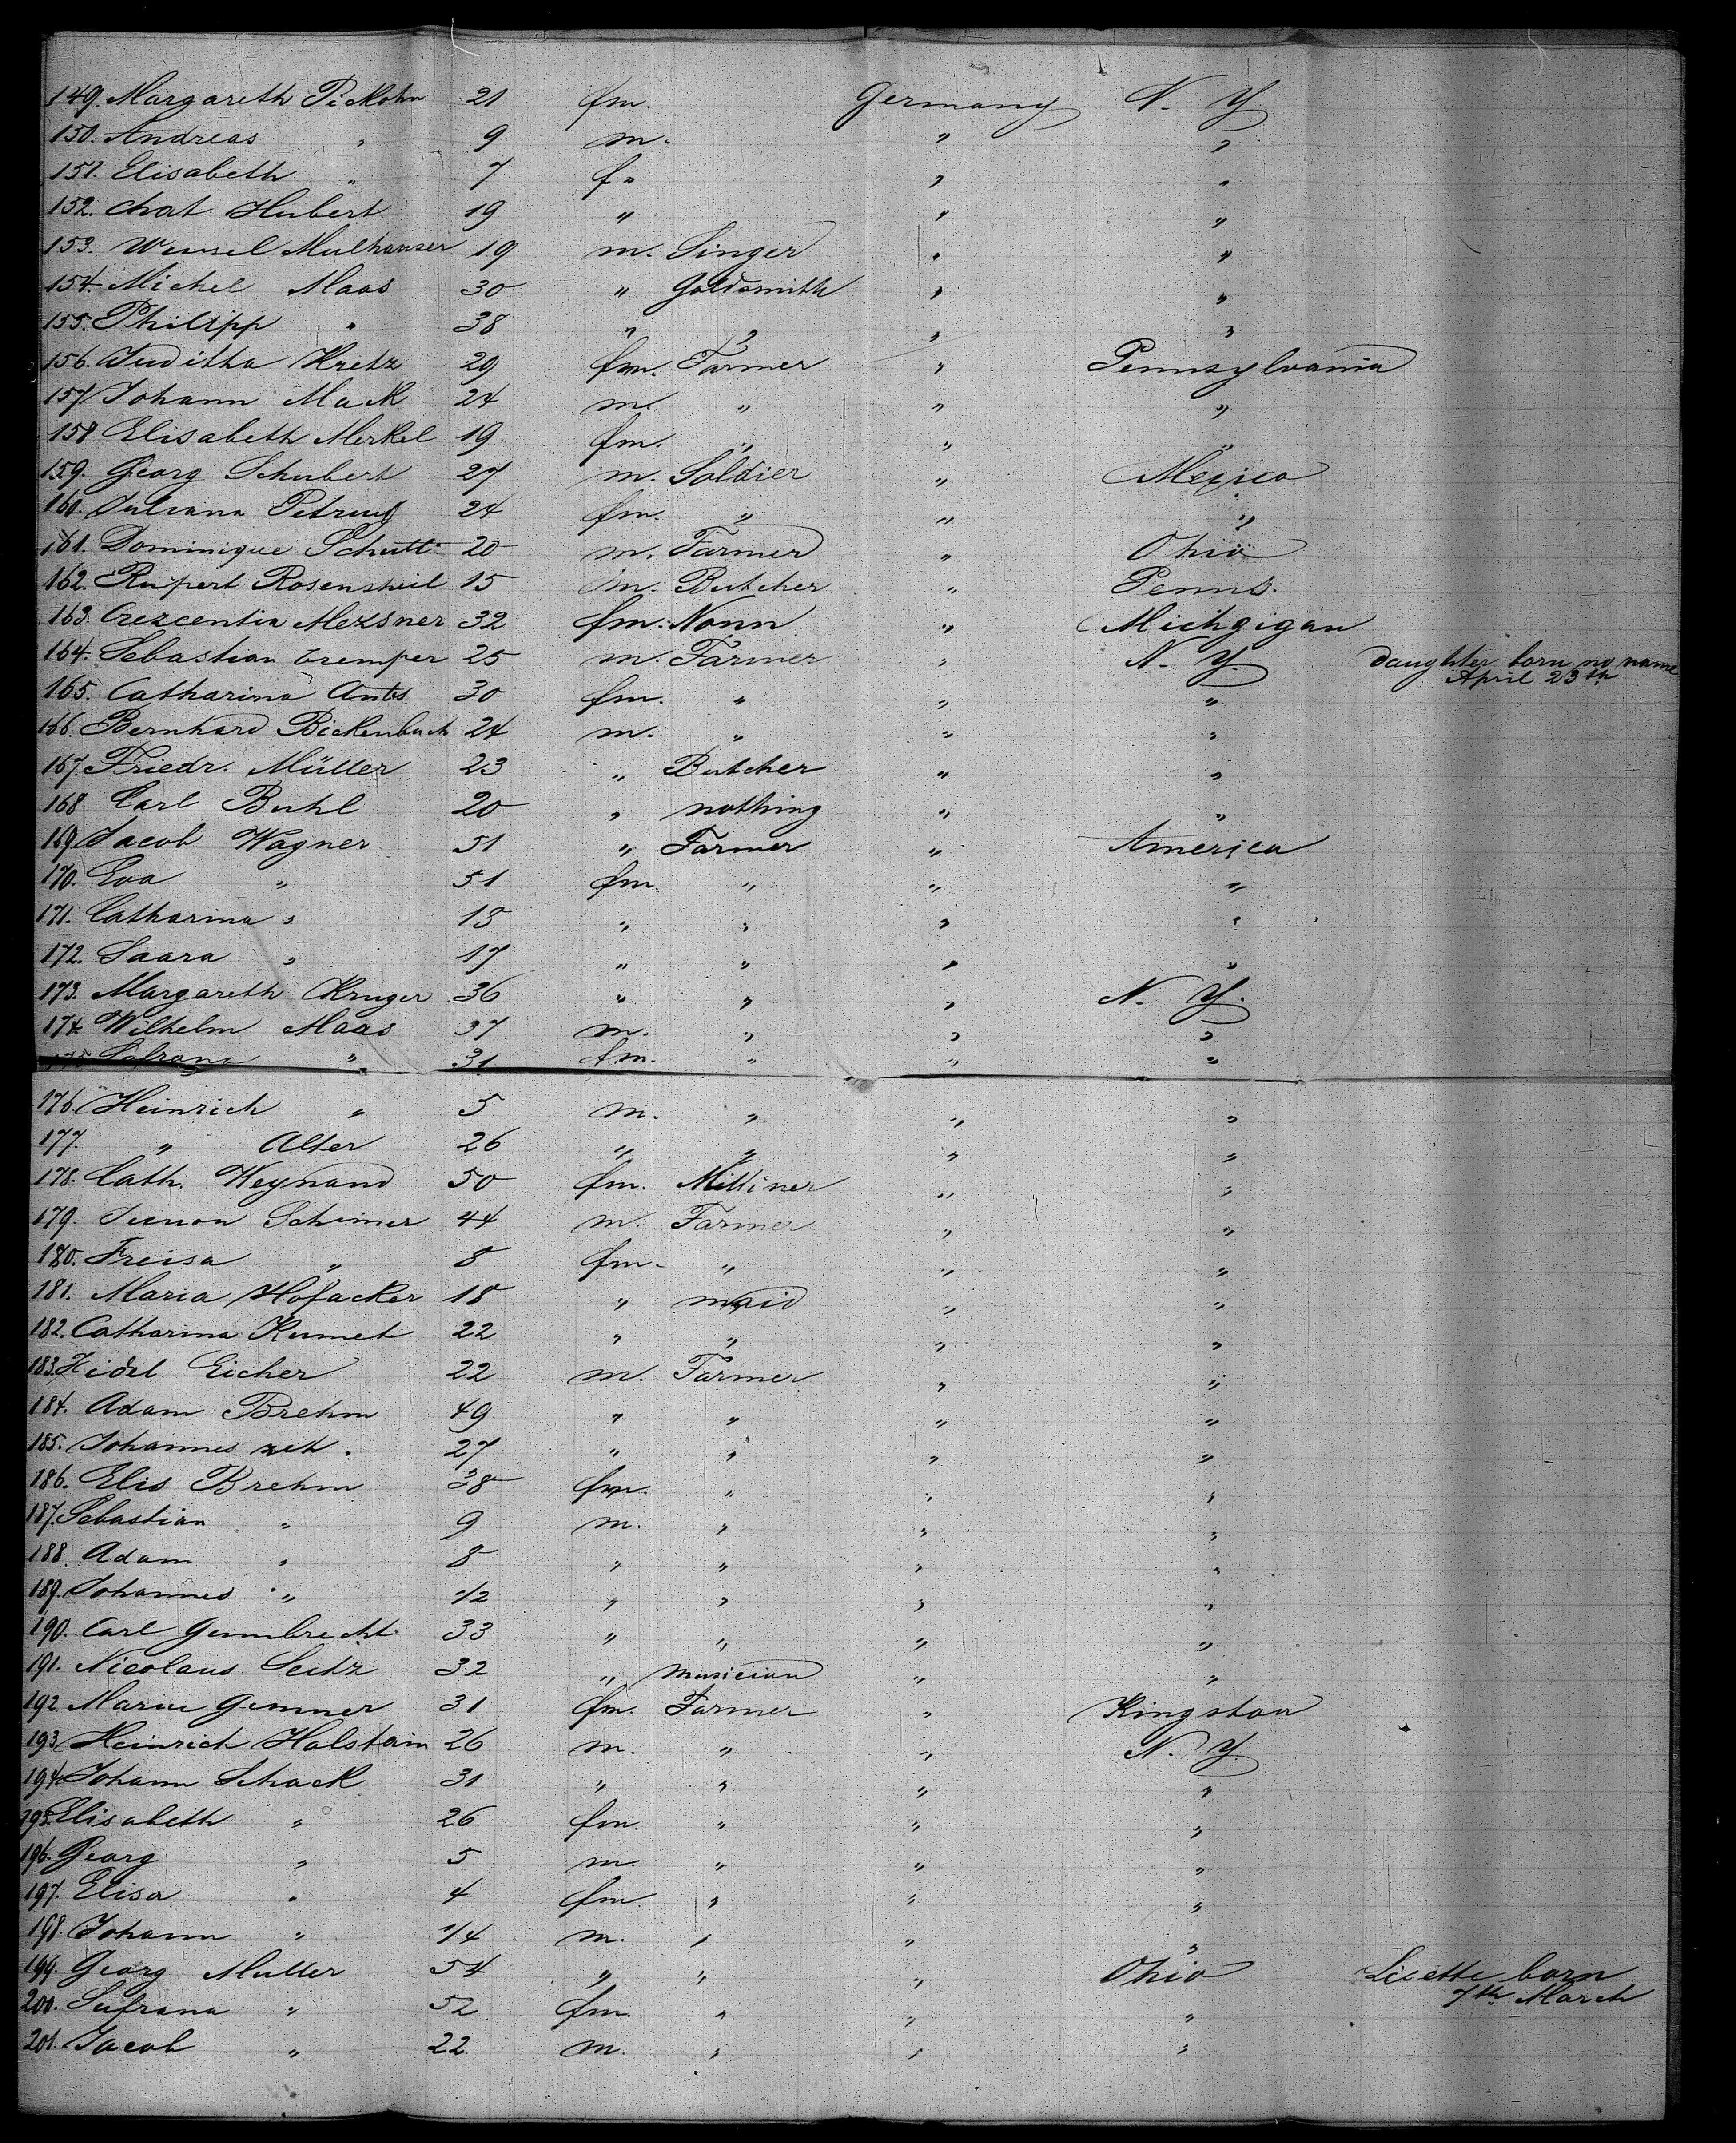 149. Margareth Pickohn 21 fm. Germany N. Y.
150. Andreas " 9 m. " "
151. Elisabeth " 7 f " " "
152. Chat Hubert 19 " " "
153. Wensel Mulhanser 19 m. Singer " "
154. Michel Maas 30 " Goldsmith " "
155. Philipp " 38 " " " "
156. Juditha Kretz 29 fm. Farmer " Pennsylvania
157. Johann Mack 24 m. " " "
158 Elisabeth Merkel 19 fm. " " "
159. Georg Schubert 27 m. Soldier " Mexico
160. Juliana 24 fm. " " "
161. Dominique Schutt 20 m. Farmer " Ohio
162. Rupert Rosensheil 15 m. Butcher " Penns.
163. Crezcentia Mezsner 32 fm. Nonn " Michgigan
164. Sebastian Cremper 25 m. Farmer " N. Y. Daughter born no name
April 23th
165. Catharina Antes 30 fm. " " "
166. Bernhard Bickenbach 24 m. " " "
167. Friedr. Müller 23 " Butcher " "
168 Carl Buhl 20 " nothing " "
169. Jacob Wagner 51 " Farmer " America
170. Eva " 51 fm. " " "
171. Catharina " 18 " " " "
172. Saara " 17 " " " "
173. Margareth Kruger 36 " " " N. Y.
174. Wilhelm Maas 37 m. " " "
175 " 31 fm. " " "
176. Heinrich " 5 m. " " "
177. " Alter 26 " " " "
178. Cath. Weynand 50 fm. Milliner " "
179. Simon Schimer 44 m. Farmer " "
180. Freisa " 8 fm. " " "
181. Maria Hofacker 18 " maid " "
182. Catharina Kumet 22 " " " "
183. Hidel Eicher 22 m. Farmer " "
184. Adam Brehm 49 " " " "
185. Johannes 27 " " " "
186. Elis Brehm 38 fm. " " "
187. Sebastian " 9 m. " " "
188. Adam " 8 " " " "
189. Johannes " 1/2 " " " "
190. Carl Gumbrecht 33 " " " "
191. Nicolaus Seitz 32 " musician " "
192. Marie Gemner 31 fm. Farmer " Kingston
193. Heinrich Holstein 26 m. " " N. Y.
194. Johann Schack 31 " " " "
195. Elisabeth " 26 fm. " " "
196. Georg " 5 m. " " "
197. Elisa " 4 fm. " " "
198. Johann " 1/4 m. " " "
199. Georg Muller 54 " " " Ohio Lisette born
7th March
200. Sufrana " 52 fm. " " "
201. Jacob " 22 m. " " "